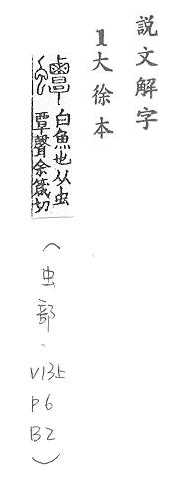 説文解字
1大徐本
蟫
白魚也从虫
覃聲余箴切
(虫部、V13上 P6 B2)